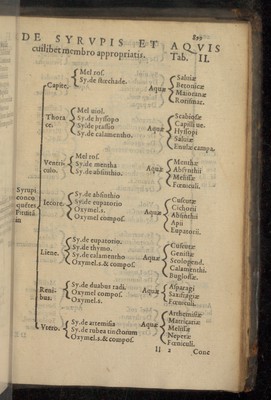 DE SYRVPIS ET AQVIS
cuilibet membro appropriatis. Tab. II.
Capiti,
Mel ros.
Sy. de stœchade.
Aquæ
Salviæ
Betonicæ
Maioranæ
Rorismar.
Thora
ci:
Mel viol.
Sy. de hyssopo
Sy. de prassio
Sy. de calamentho.
Aquæ
Scabiosæ
Capill. ve.
Hyssopi
Salviæ
Enulæ campa.
Ventri-
culo.
Mel ros.
Sy. de mentha
Sy. de absinthio.
Aquæ
Menthæ
Absinthii
Melissæ
Fœniculi.
Syrupi
conco
quētes
Iecore.
Sy. de absinthio
Sy. de eupatorio
Oxymel. s.
Oxymel compos.
Aquæ
Cuscutæ
Cichorii
Absinthii
Apii
Eupatorii.
Liene.
Sy. de eupatorio.
Sy. de thymo.
Sy. de calamentho
Oxymel. s. & compos.
Aquæ
Cuscutæ
Genistæ
Scolopend.
Calamenthi.
Buglossæ.
Reni-
bus.
Sy. de duabus radi.
Oxymel compos.
Oxymel. s.
Aquæ
Asparagi
Saxifragiæ
Fœniculi.
Vtero.
Sy. de artemisia
Sy. de rubea tinctorum
Oxymel. s. & compos.
Aquæ
Arthemisiæ
Matricariæ
Melissæ
Nepetæ
Fœniculi.
ll 2 Conc